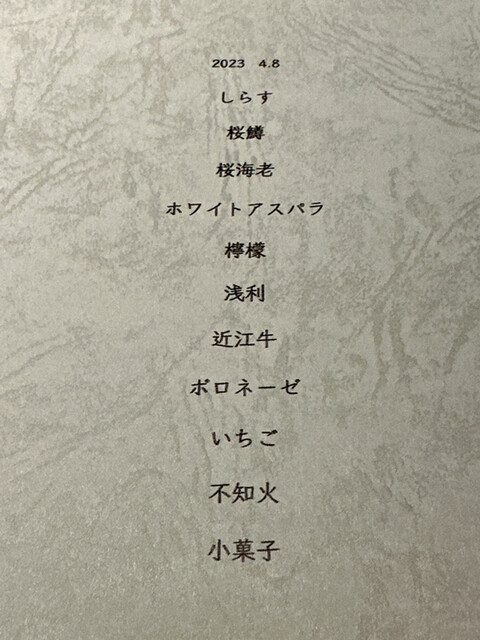 2023 4.8
しらす
桜鱒
桜海老
ホワイトアスパラ
檸檬
浅利
近江牛
ボロネーゼ
いちご
不知火
小菓子